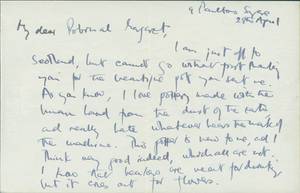 29th April
My dear
I am just off to
Scotland, but cannot go without
you for the beautiful pot you sent me.
As you know, I love pottery made with the
human hand from the dust of the earth
and really hate whatever bears the mark of
the machine. This potter is new to me, and I
think very good indeed, which all are not.
I know that are meant for
but it cries out for flowers.